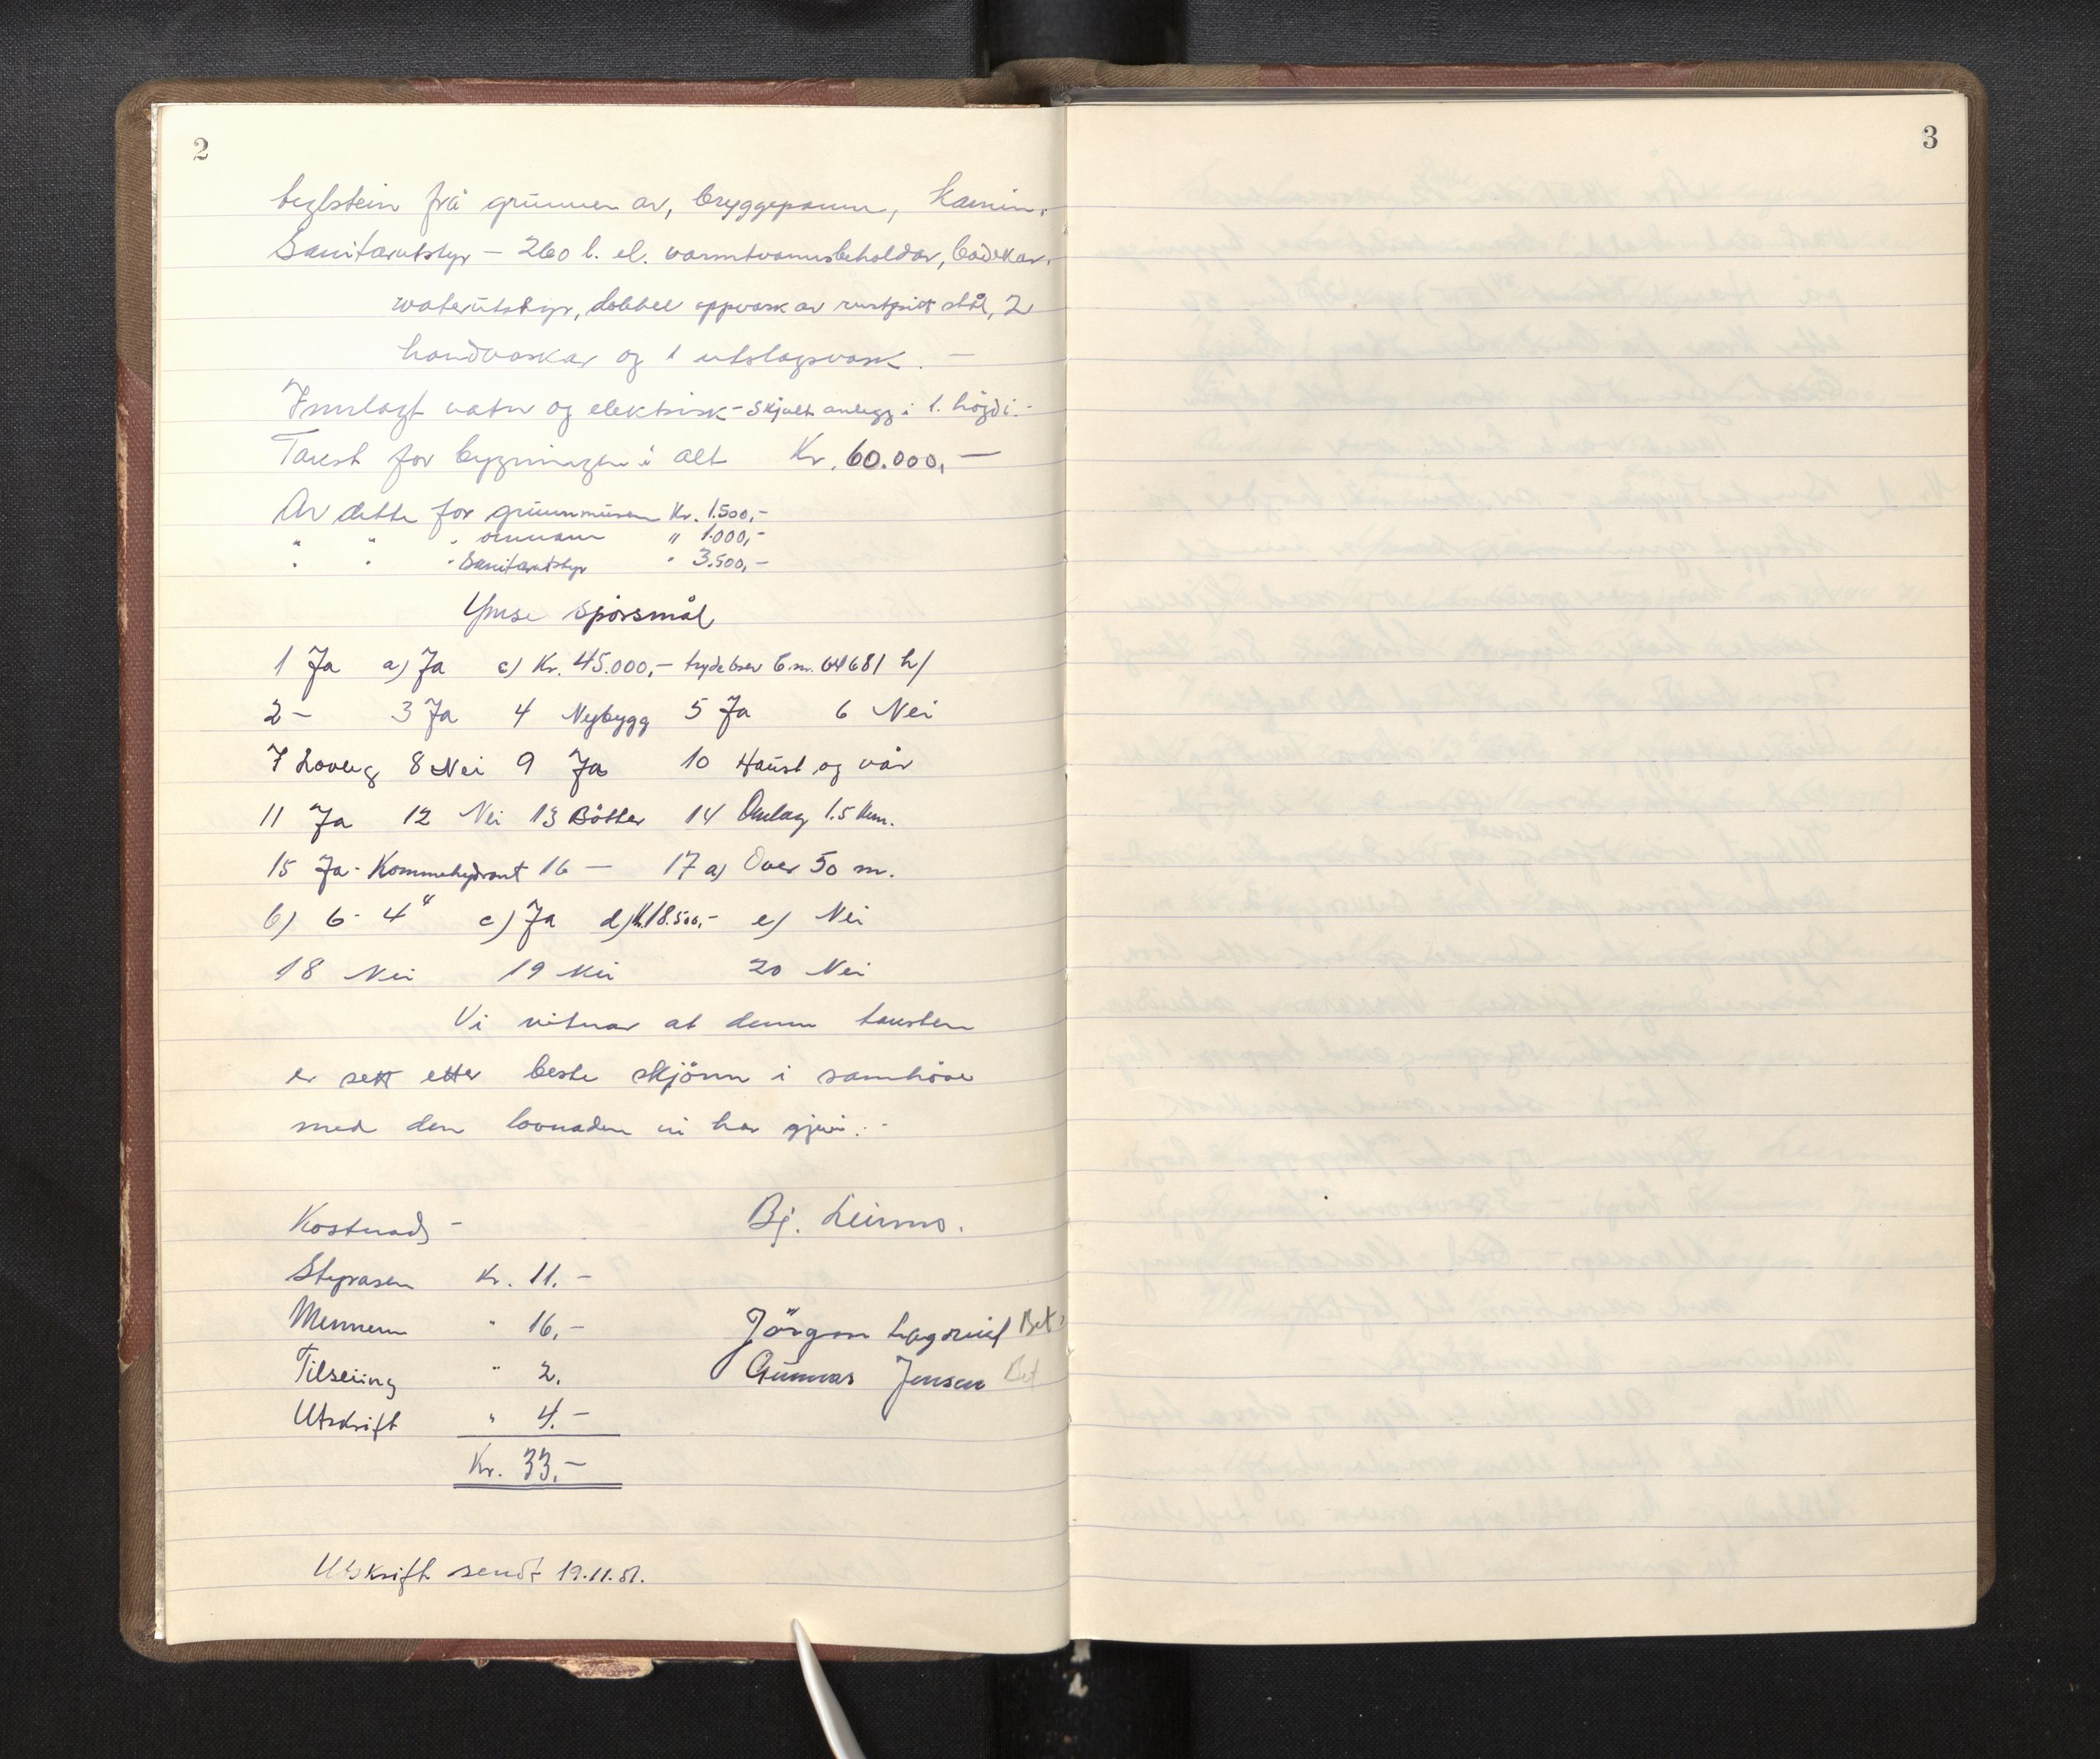 2
teglstein frå grunnen av, bryggepanne, kamin.
Sanitærutstyr – 260 l. el. varmtvannsbeholdar, badekar,
waterutstyr, dobbel oppvask av rustfritt stål, 2
handvaskar og 1 utslagsvask. –
Innlagt vatn og elektrisk - skjult anlegg i 1. högdi. -
Takst for bygningen i alt Kr. 60.000,-
Av dette for grunnmuren Kr. 1.500,-
" " " omnane " 1.000,-
" " " Sanitærutstyr " 3.500,-
Ymse spörsmål
1 Ja a) Ja c) Kr. 45.000,- trydebrev B.nr. 64681 h/
2 – 3 Ja 4 Nybygg 5 Ja 6 Nei
7 Lovleg 8 Nei 9 Ja 10 Haust og vår
11 Ja 12 Nei 13 Bötter 14 Omlag 1.5 km.
15 Ja - Kommehydrant 16 – 17 a) Over 50 m.
b) 6 - 4" c) Ja d) K. 18.500,- e) Nei
18 Nei 19 Nei 20 Nei
Vi vitnar at denne taksten
er sett etter beste skjönn i samhöve
med den lovnaden vi har gjevi. -
Kostnad -
Bj. Leirmo.
Styrasen Kr. 11. -
Mennene " 16,-
Jörgen Lagreid Bet
Tilseiing " 2.
Gunnar Jensen Bet
Utskrift " 4. -
Kr. 33,-
Utskrift sendt 19.11.51.
3